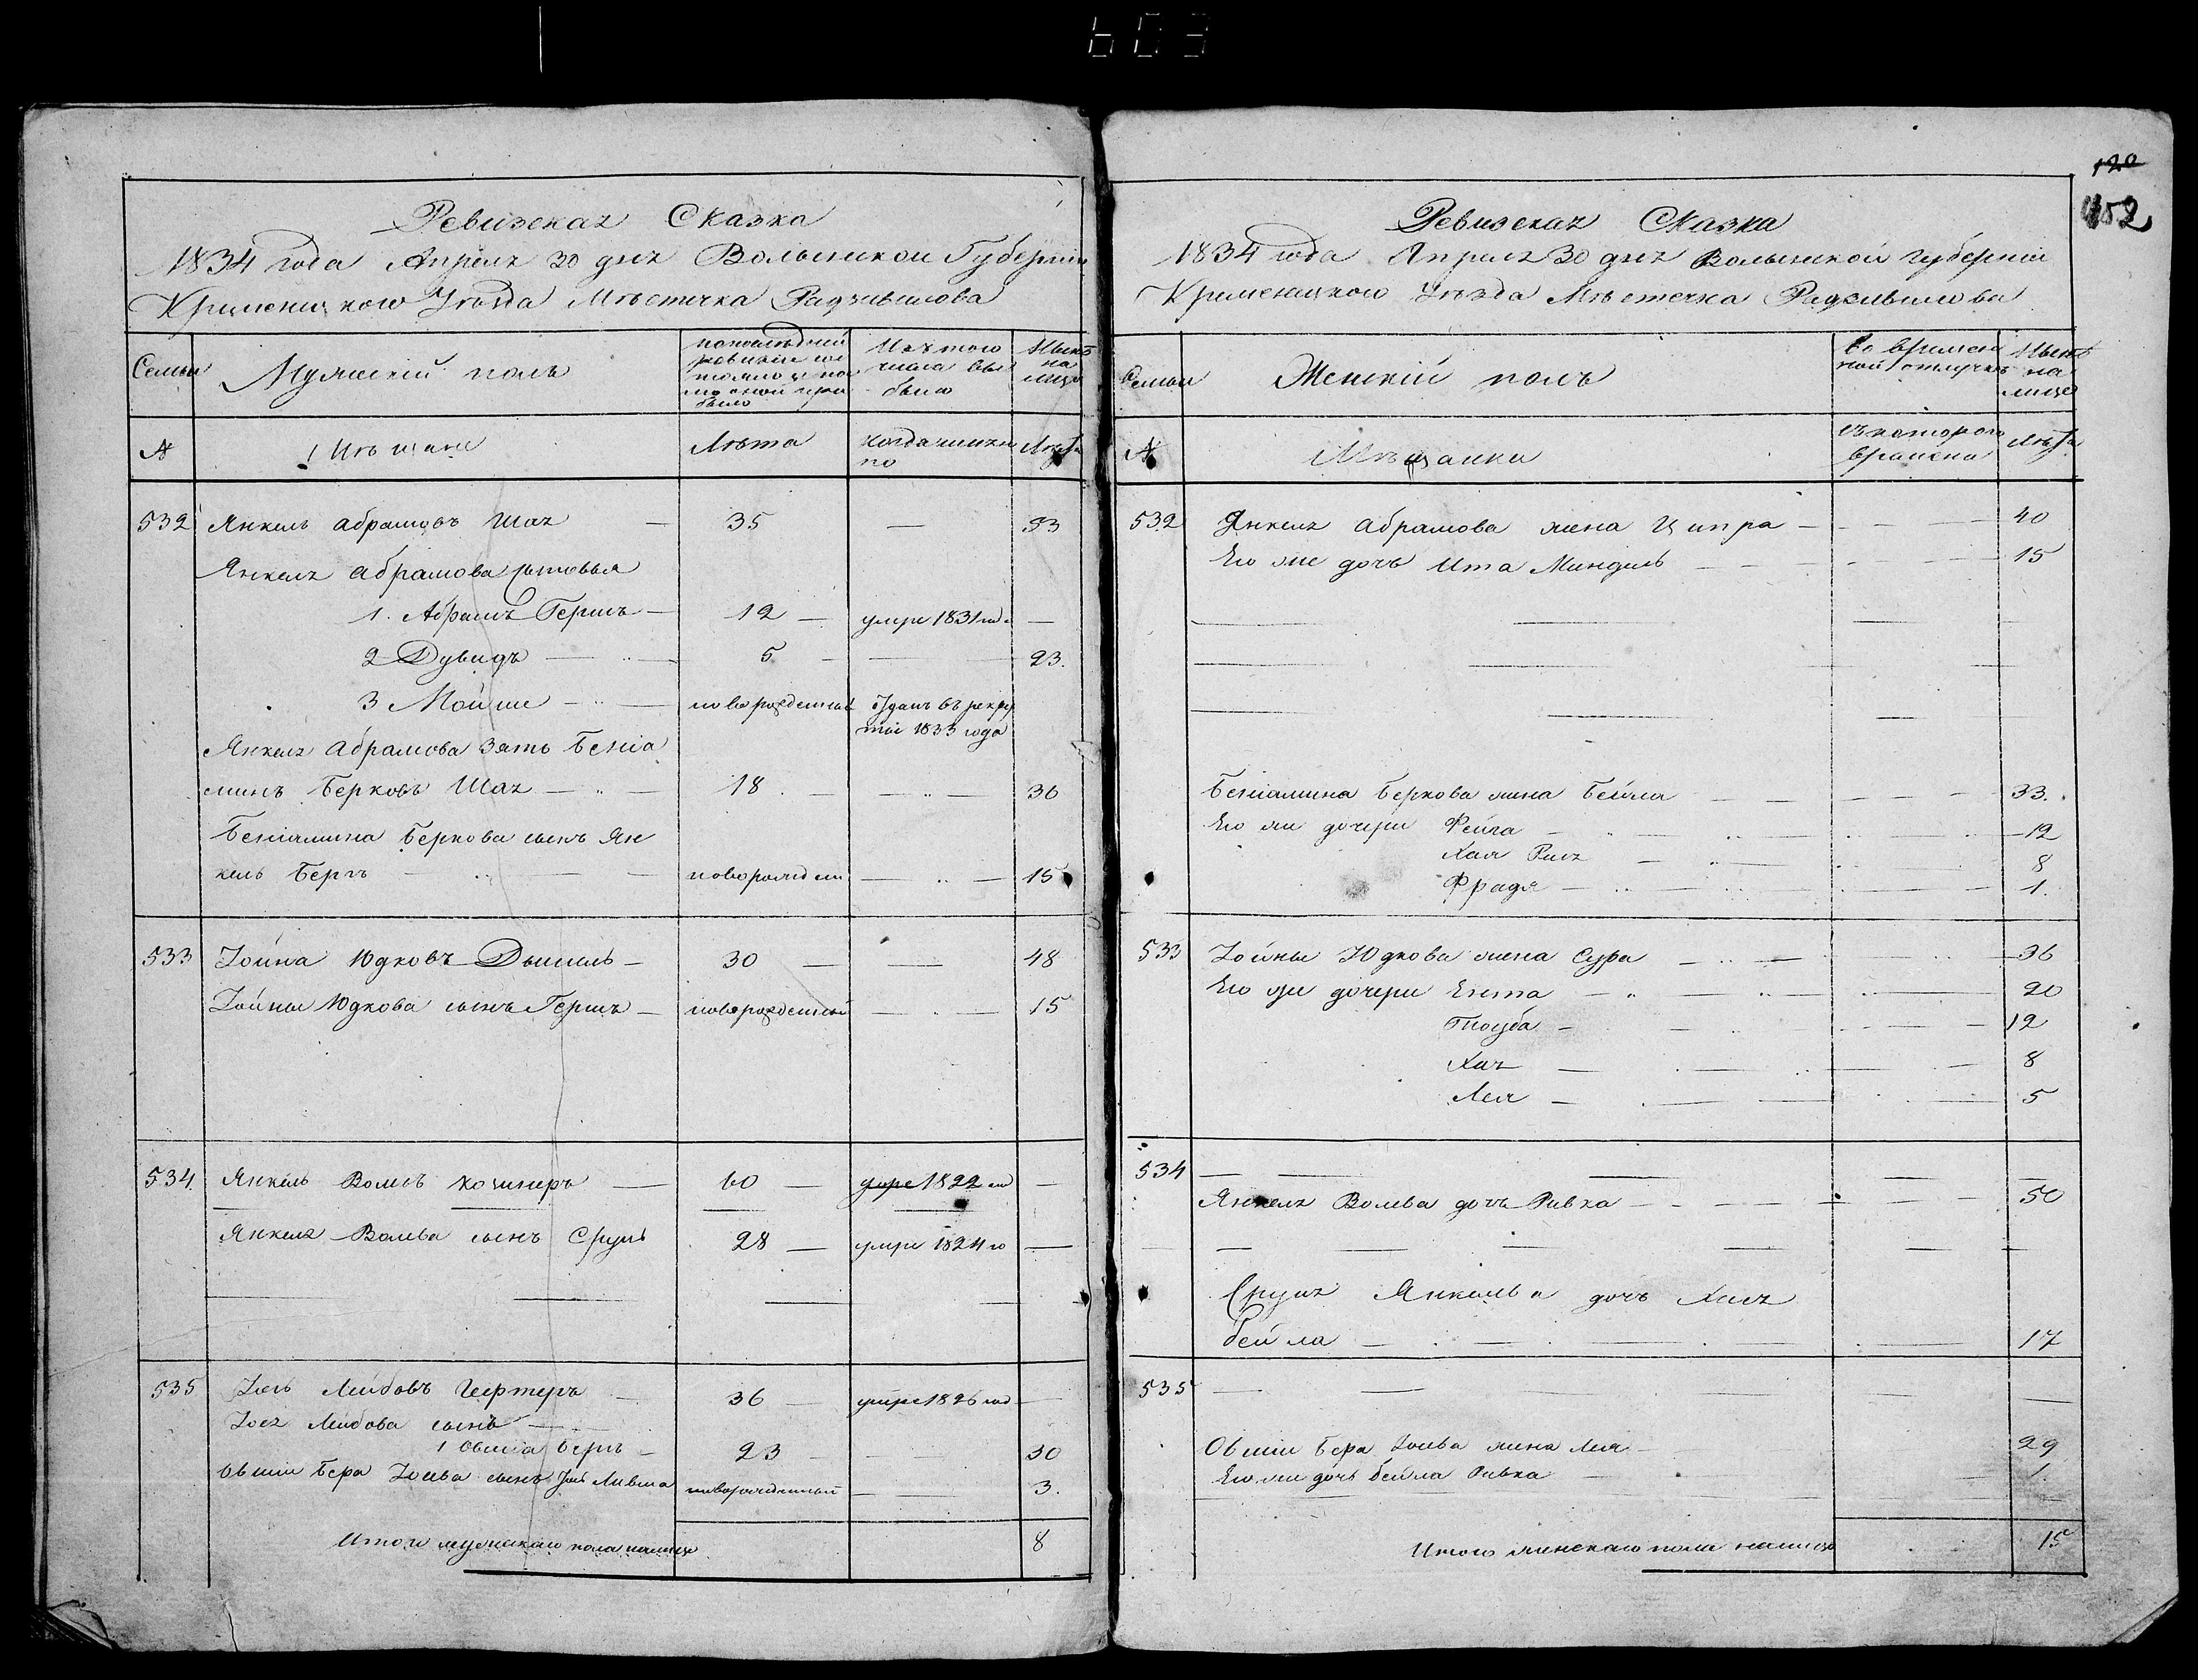 603
Ревизская Сказка
1834 года Апреля 30 дня Волынской Губернии
Кременецкого Уѣзда Мѣстечка Радзивилова
Семьи
Мужескій полъ
по последней ревизіи состояло и после оной прибыло
Изъ того числа выбыло
Нынѣ на лицо
№
Мѣщане
Лѣта
когда именно
Лѣта
532 Янкель Абрамовъ Шаz — 35 — 53
Янкеля Абрамова сыновья
1. Абрамъ Гершъ — 12 — умре 1831 год —
2 Дувидъ — 5 — 23.
3 Мойше — новорожденный Зданъ въ рекру
ты 1833 года
Янкеля Абрамова Зять Беніа
минъ Берковъ Шаz — 18 — 36
Беніамина Беркова сынъ Ян
кель Беръ — новорожден — 15
533 Іойна Юдковъ — 30 — 48
Іойны Юдкова сынъ Гершъ — новорожденный — 15
534 Янкель Волевъ — 60 — умре 1822 го —
Янкеля Волева сынъ Сруль 28 — умре 1824 го —
535 Іось Лейбовъ — 36 — умре 1826 год —
Іося Лейбова сынъ —
1 Овшіа Беръ — 23 — 30
Овшіи Бера Іосева сынъ новорожденный — 3.
Итого мужескаго пола на лицо 8
120
152
Ревизская Сказка
1834 года Апреля 30 дня Волынской губерніи
Кременецкого Уѣзда Мѣстечка Радзивилова
Семьи
Женскій полъ
Во временной отлучкѣ
Нынѣ на лице
№
Мѣщанки
съ котораго времени
Лѣта
532 Янкеля Абрамова жена Ципра — 40
Его же дочь Ита Миндиль — 15
Беніамина Беркова жена Бейла — 33.
Его же дочери Фейга — 12
Хая — 8
Фрадя — 1.
533 Іойны Юдкова жена Сура — 36
Его же дочери Ента — 20
Тоуба — 12
Хая — 8
Лея — 5
534
Янкеля Волева дочь Ривка — 50
Сруля Янкелева дочь Хая
Бейла — 17
535
Овшіи Бера Іосева жена Лея — 29
Его же дочь Бейла Ривка — 1.
Итого женскаго пола на лице 15